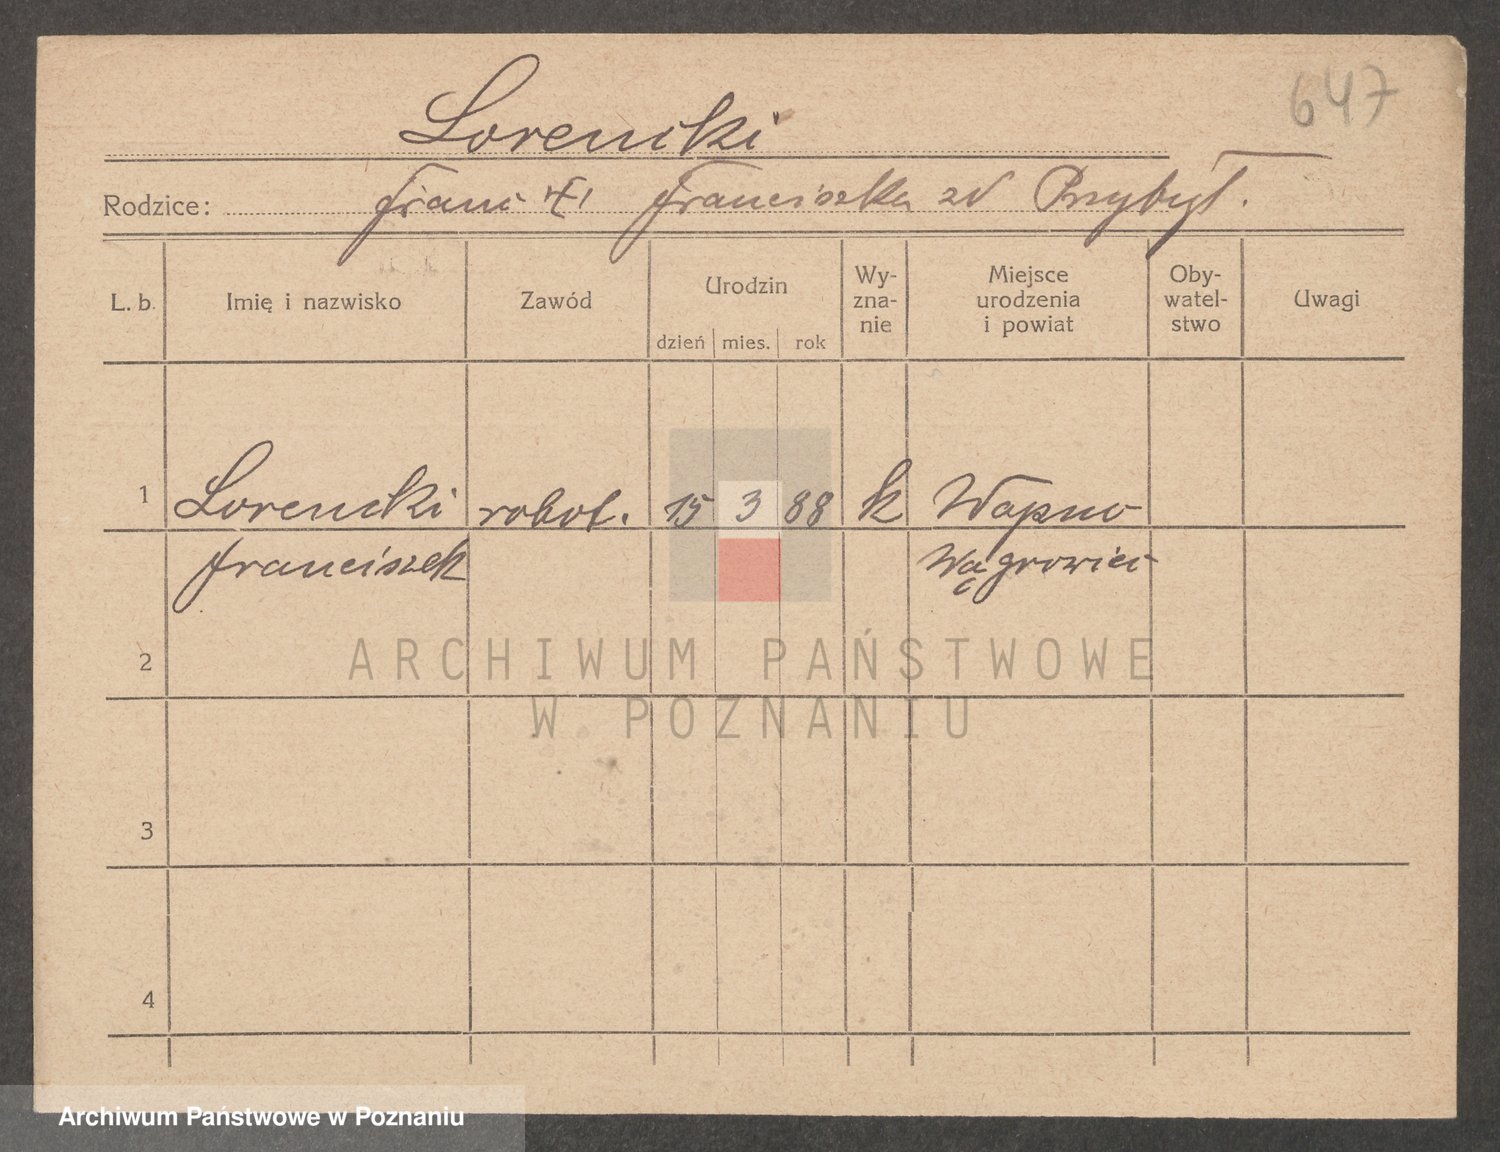 647
Lorencki
Rodzice: Franc Franciszka zd Przybył.
L. b. Imię i nazwisko Zawód Urodzin dzień mies. rok Wy-zna-nie Miejsce urodzenia i powiat Oby-watel-stwo Uwagi
1 Lorencki robot. 15 3 88 k Wapno
Franciszek Wągrowiec
2
ARCHIWUM PAŃSTWOWE
W POZNANIU
3
4
Archiwum Państwowe w Poznaniu